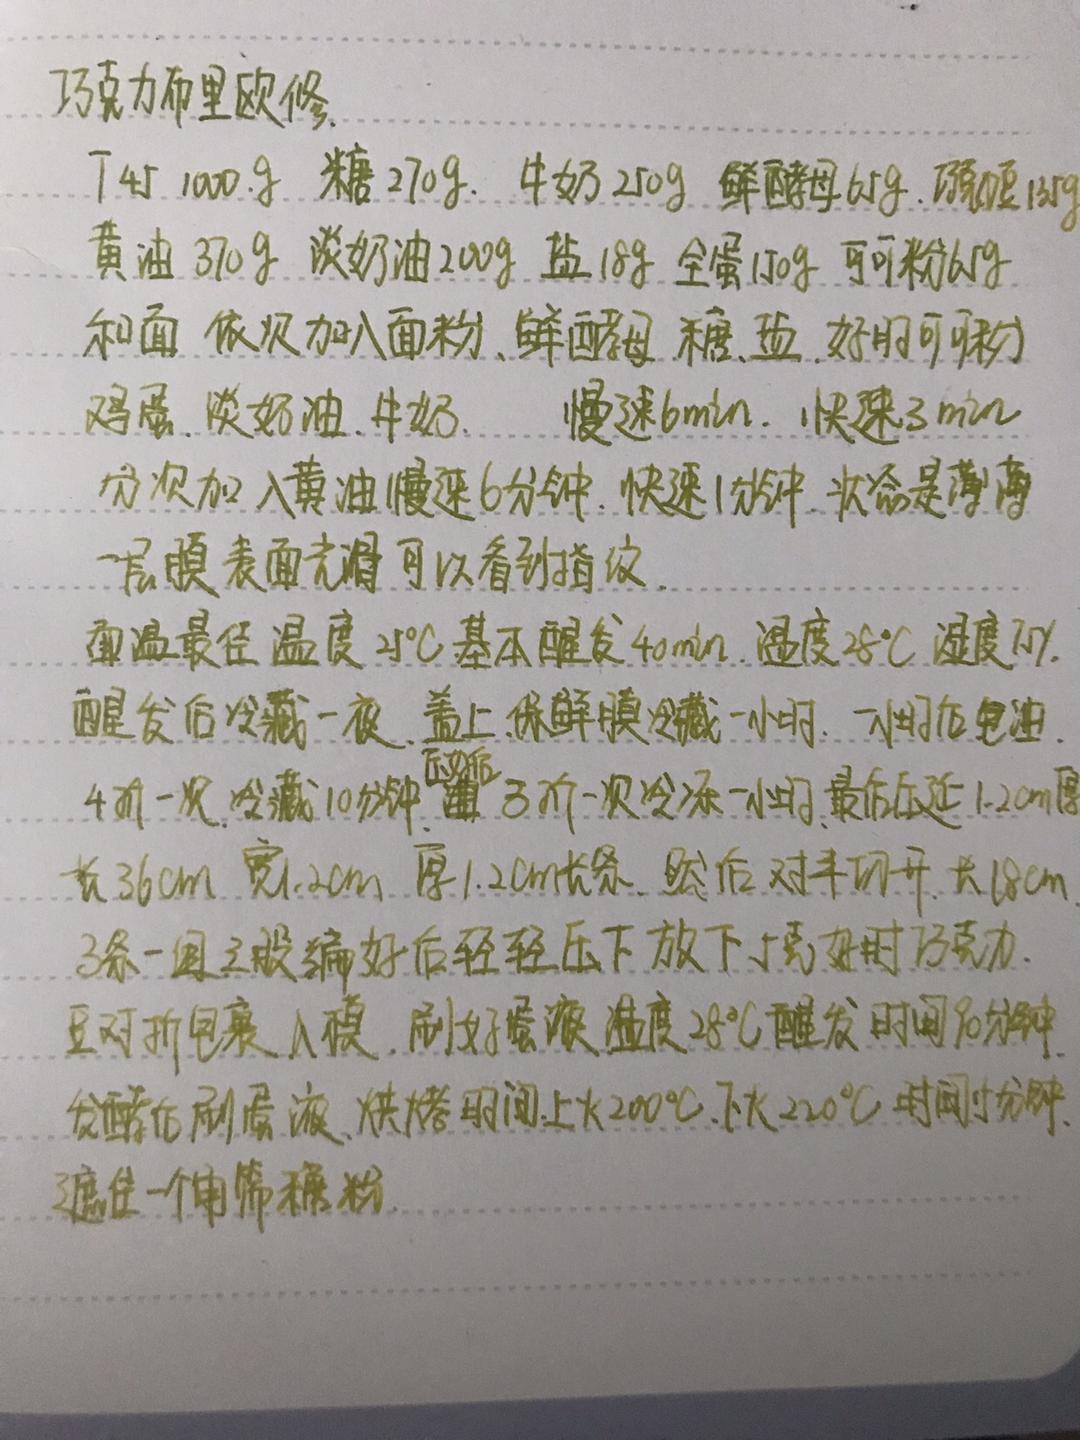 巧克力布里欧修.
T45 1000.g 糖270g. 牛奶250g 鲜酵母65g. 巧克力豆135g
黄油370g 淡奶油200g 盐18g 全蛋150g 可可粉65g
和面 依次加入面粉、鲜酵母 糖、盐. 好时可可粉
鸡蛋. 淡奶油. 牛奶. 慢速6min. 快速3min
分次加入黄油慢速6分钟. 快速1分钟. 状态是薄薄
一层膜表面光滑可以看到指纹.
面温最佳温度25℃基本醒发40min. 温度28℃ 湿度75%.
醒发后冷藏一夜. 盖上保鲜膜冷藏一小时. 一小时后包油.
4折一次. 冷藏10分钟. 压好后 3折一次冷冻一小时. 最后压延1.2cm厚
长36cm 宽1.2cm 厚1.2cm长条. 然后对半切开. 长18cm.
3条一组三股编好后轻轻压下 放下5克好时巧克力.
豆对折包裹 入模. 刷好蛋液 温度28℃醒发 时间90分钟.
发酵后刷蛋液. 烘烤时间上火200℃. 下火220℃ 时间15分钟.
遮住一个角筛糖粉.